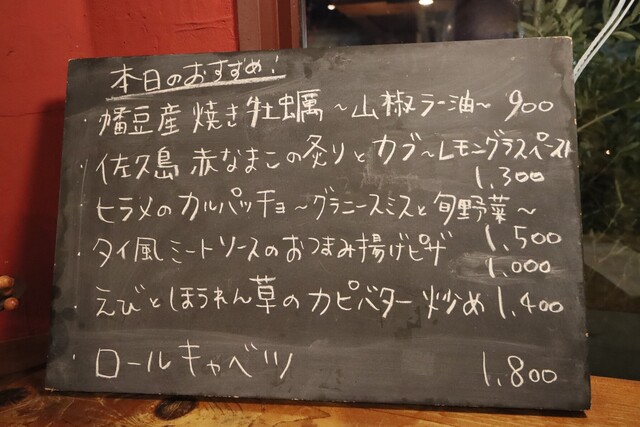 本日のおすすめ!
・幡豆産 焼き牡蠣 ~山椒ラー油~ 900
・佐久島 赤なまこの炙りとカブ~レモングラスペースト
1,300
・ヒラメのカルパッチョ~グラニースミスと旬野菜~
1,500
・タイ風ミートソースのおつまみ揚げピザ
1,000
・えびとほうれん草のカピバター炒め 1,400
・ロールキャベツ 1,800